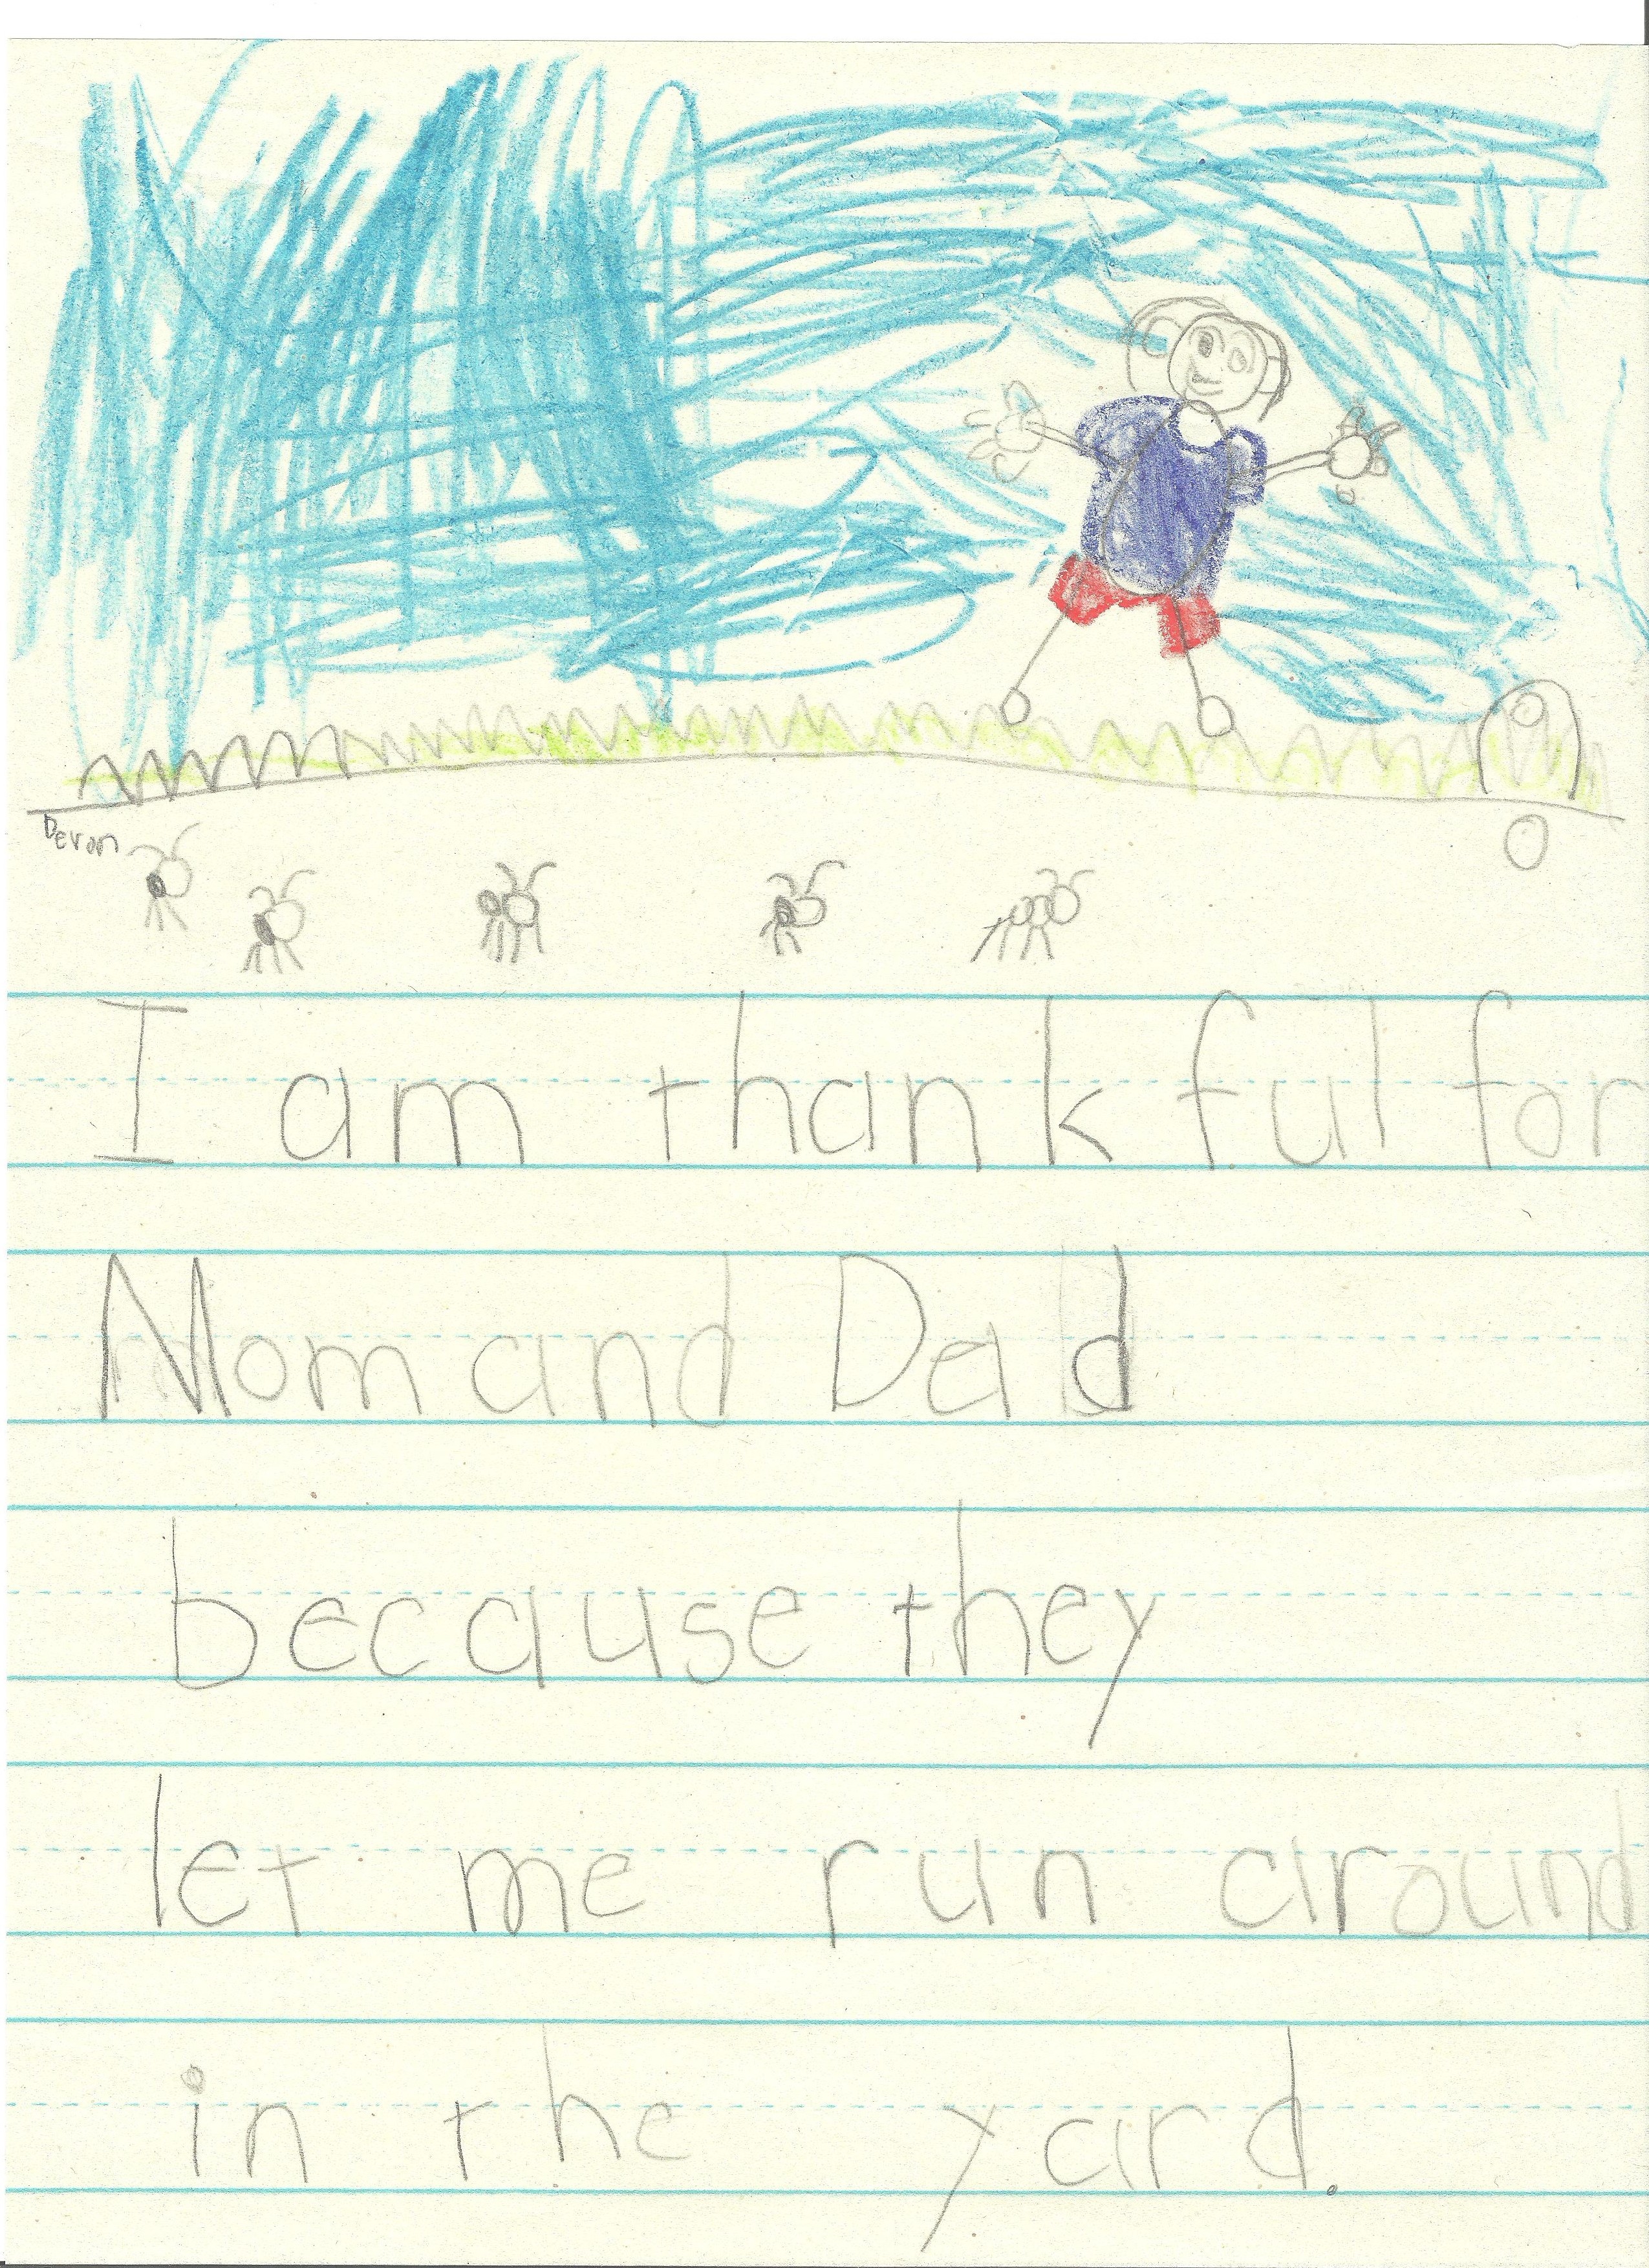 Devon
I am thankful for
Mom and Dad
because they
let me run around
in the yard.